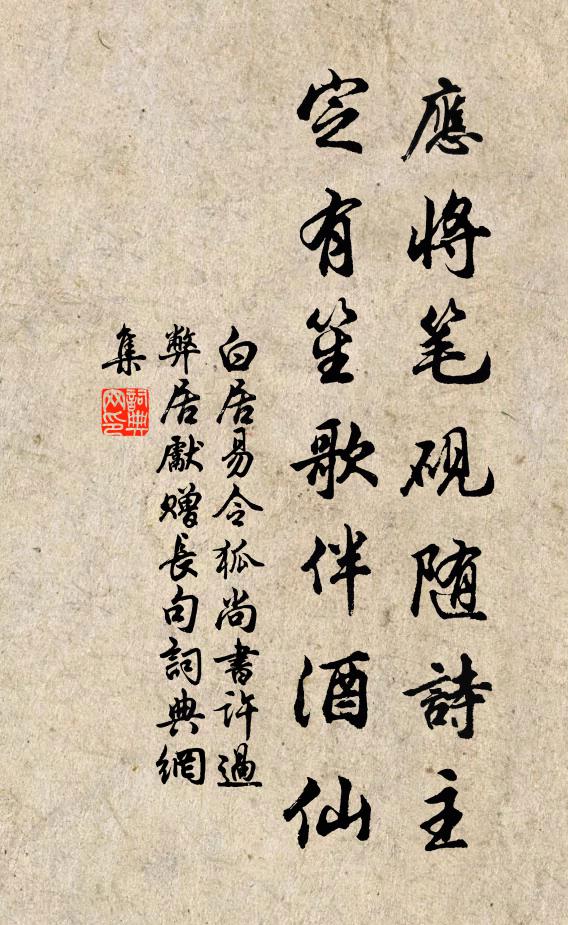 應將笔硯随詩主
定有笙歌伴酒仙
白居易令狐尚書許過
弊居獻贈長句詞典網
集
詞典網印